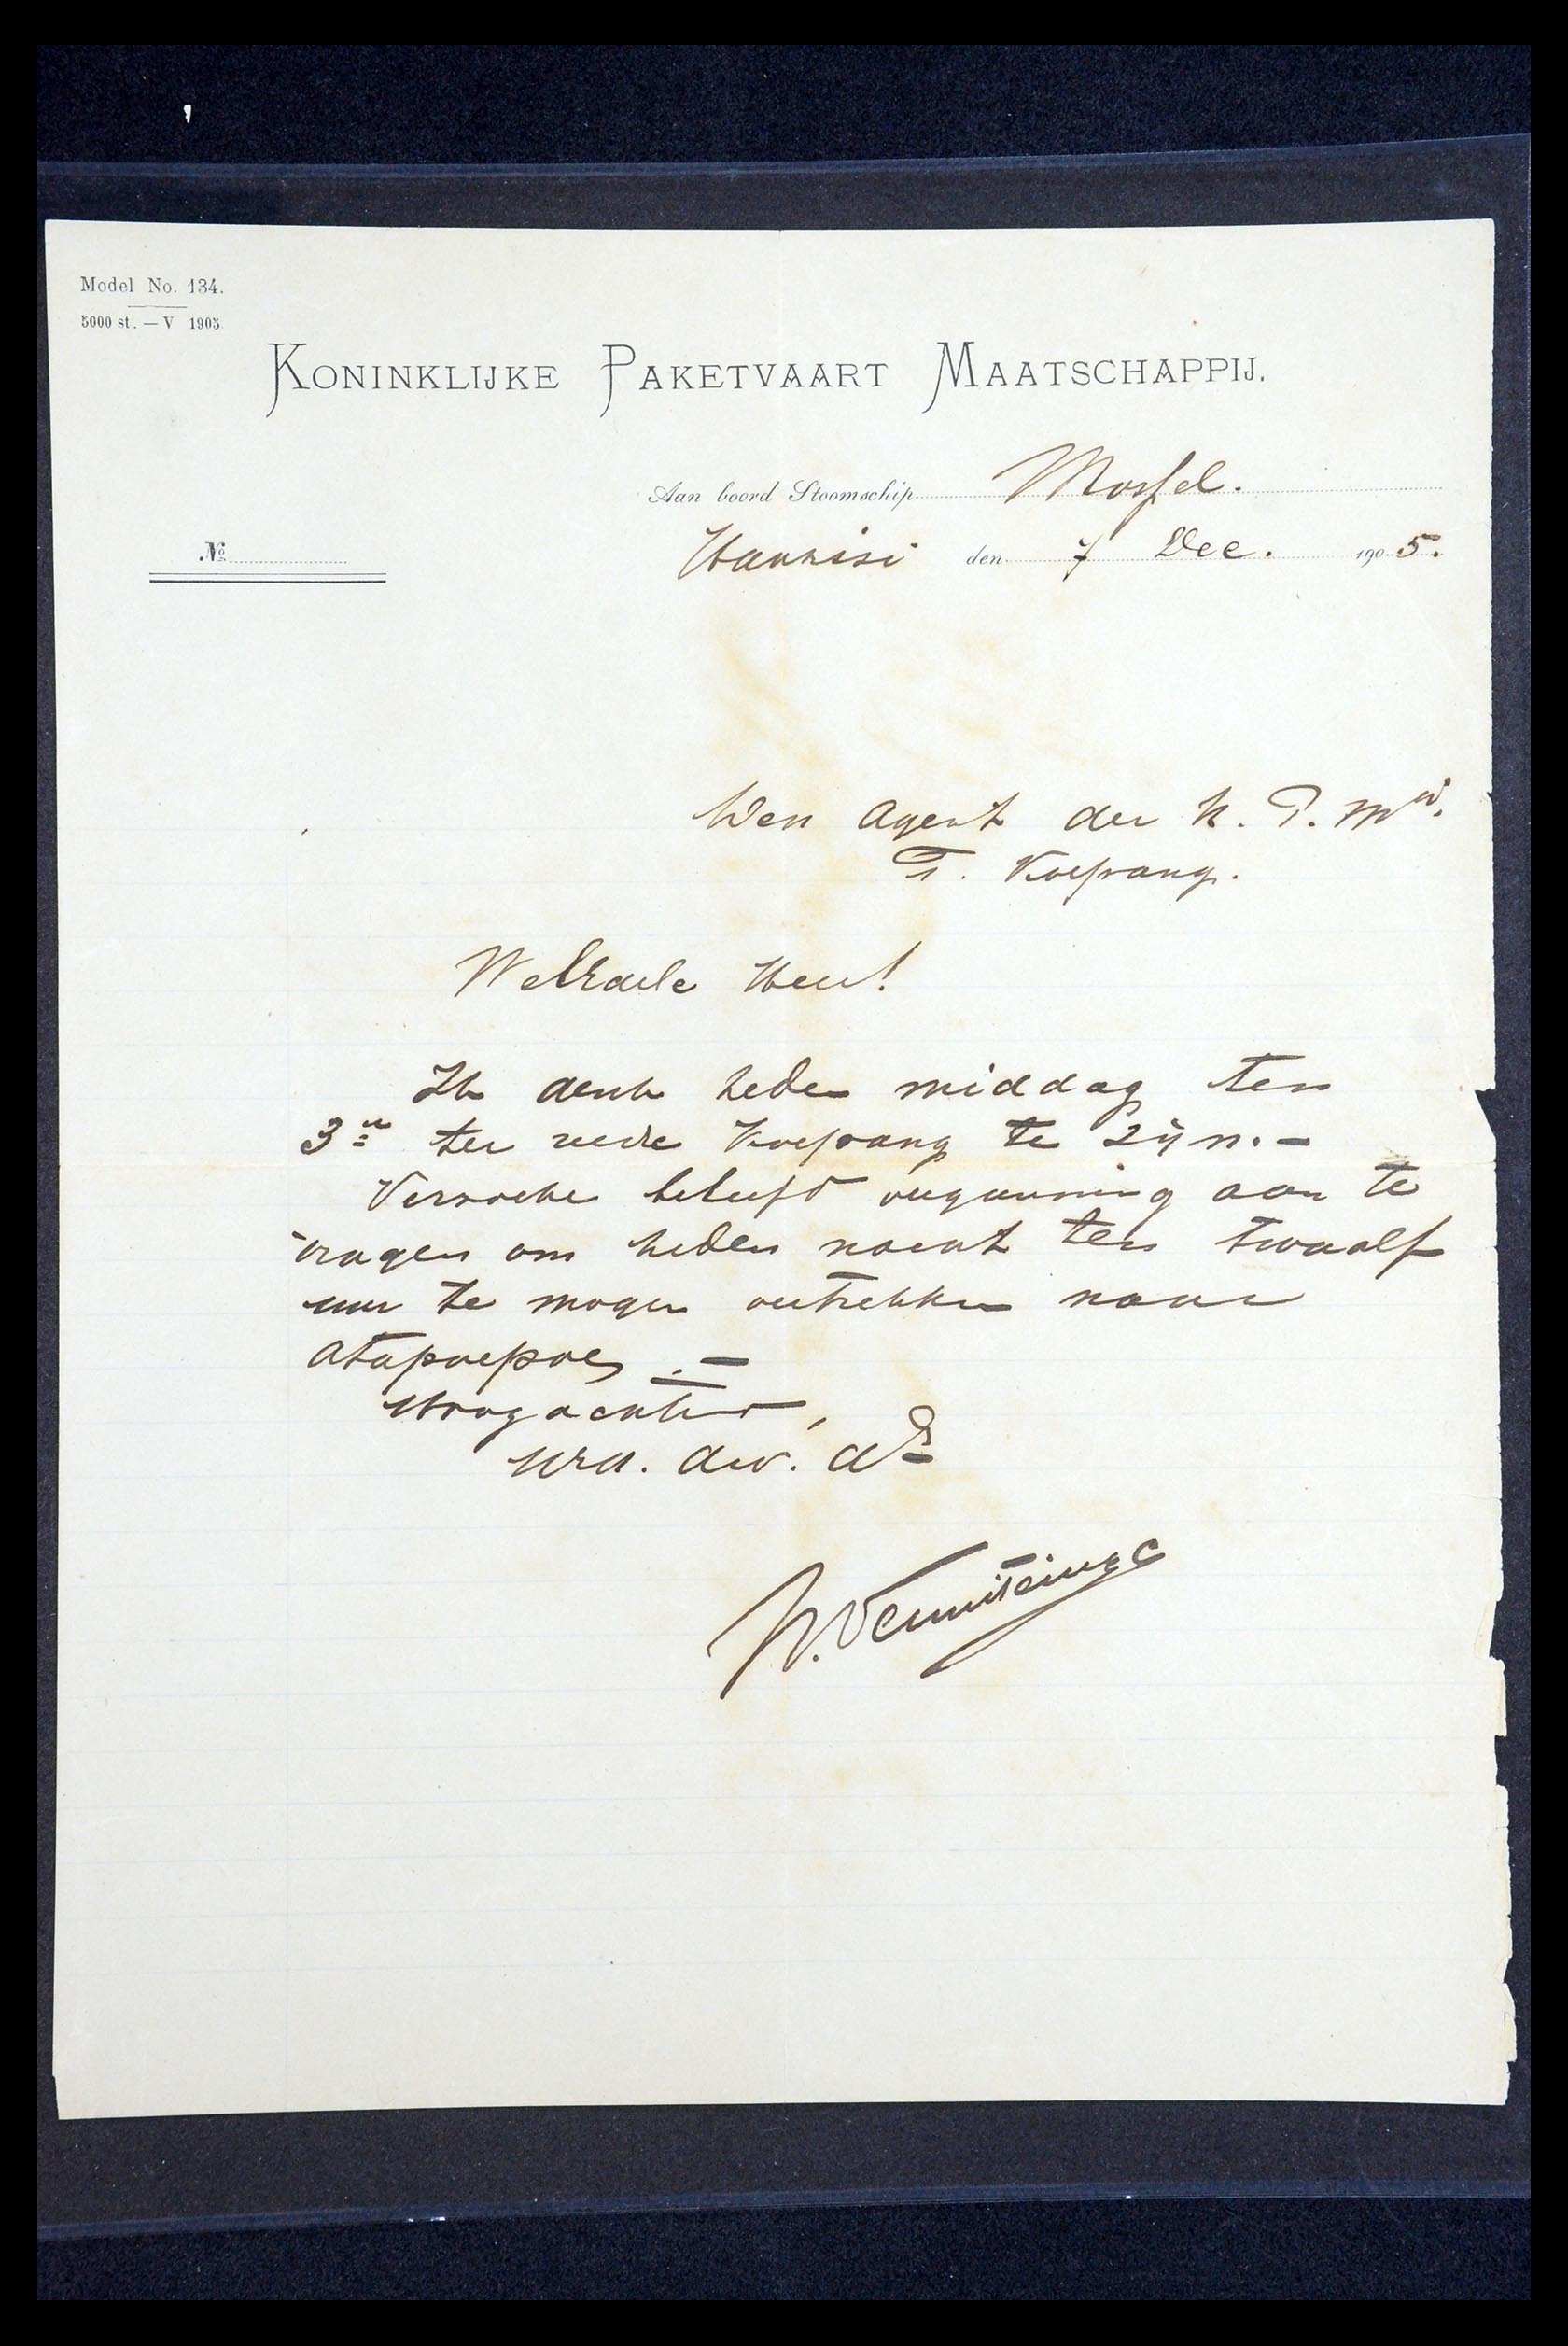 Model No. 134.
5000 st. — V 1905.
KONINKLIJKE PAKETVAART MAATSCHAPPIJ.
Aan boord Stoomschip Mossel.
No Hansisi den 7 Dec. 1905.
Den Agent der K. P. Mij.
T. Koepang.
WelEdele Heer!
Ik denk heden middag ten
3 u ter reede Koepang te zijn. —
Verzoeke beleefd vergunning aan te
vragen om heden nacht ten twaalf
uur te mogen vertrekken naar
Atapoepoe. —
Hoogachtend,
UEd. dw. dr